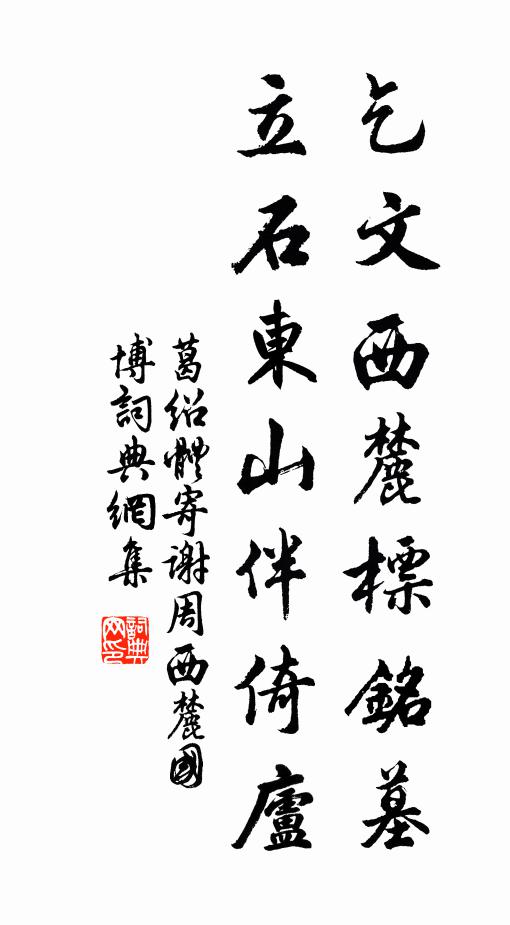 乞文西麓標銘墓
立石東山伴倚廬
葛绍體寄謝周西麓國
博詞典網集
詞典网印